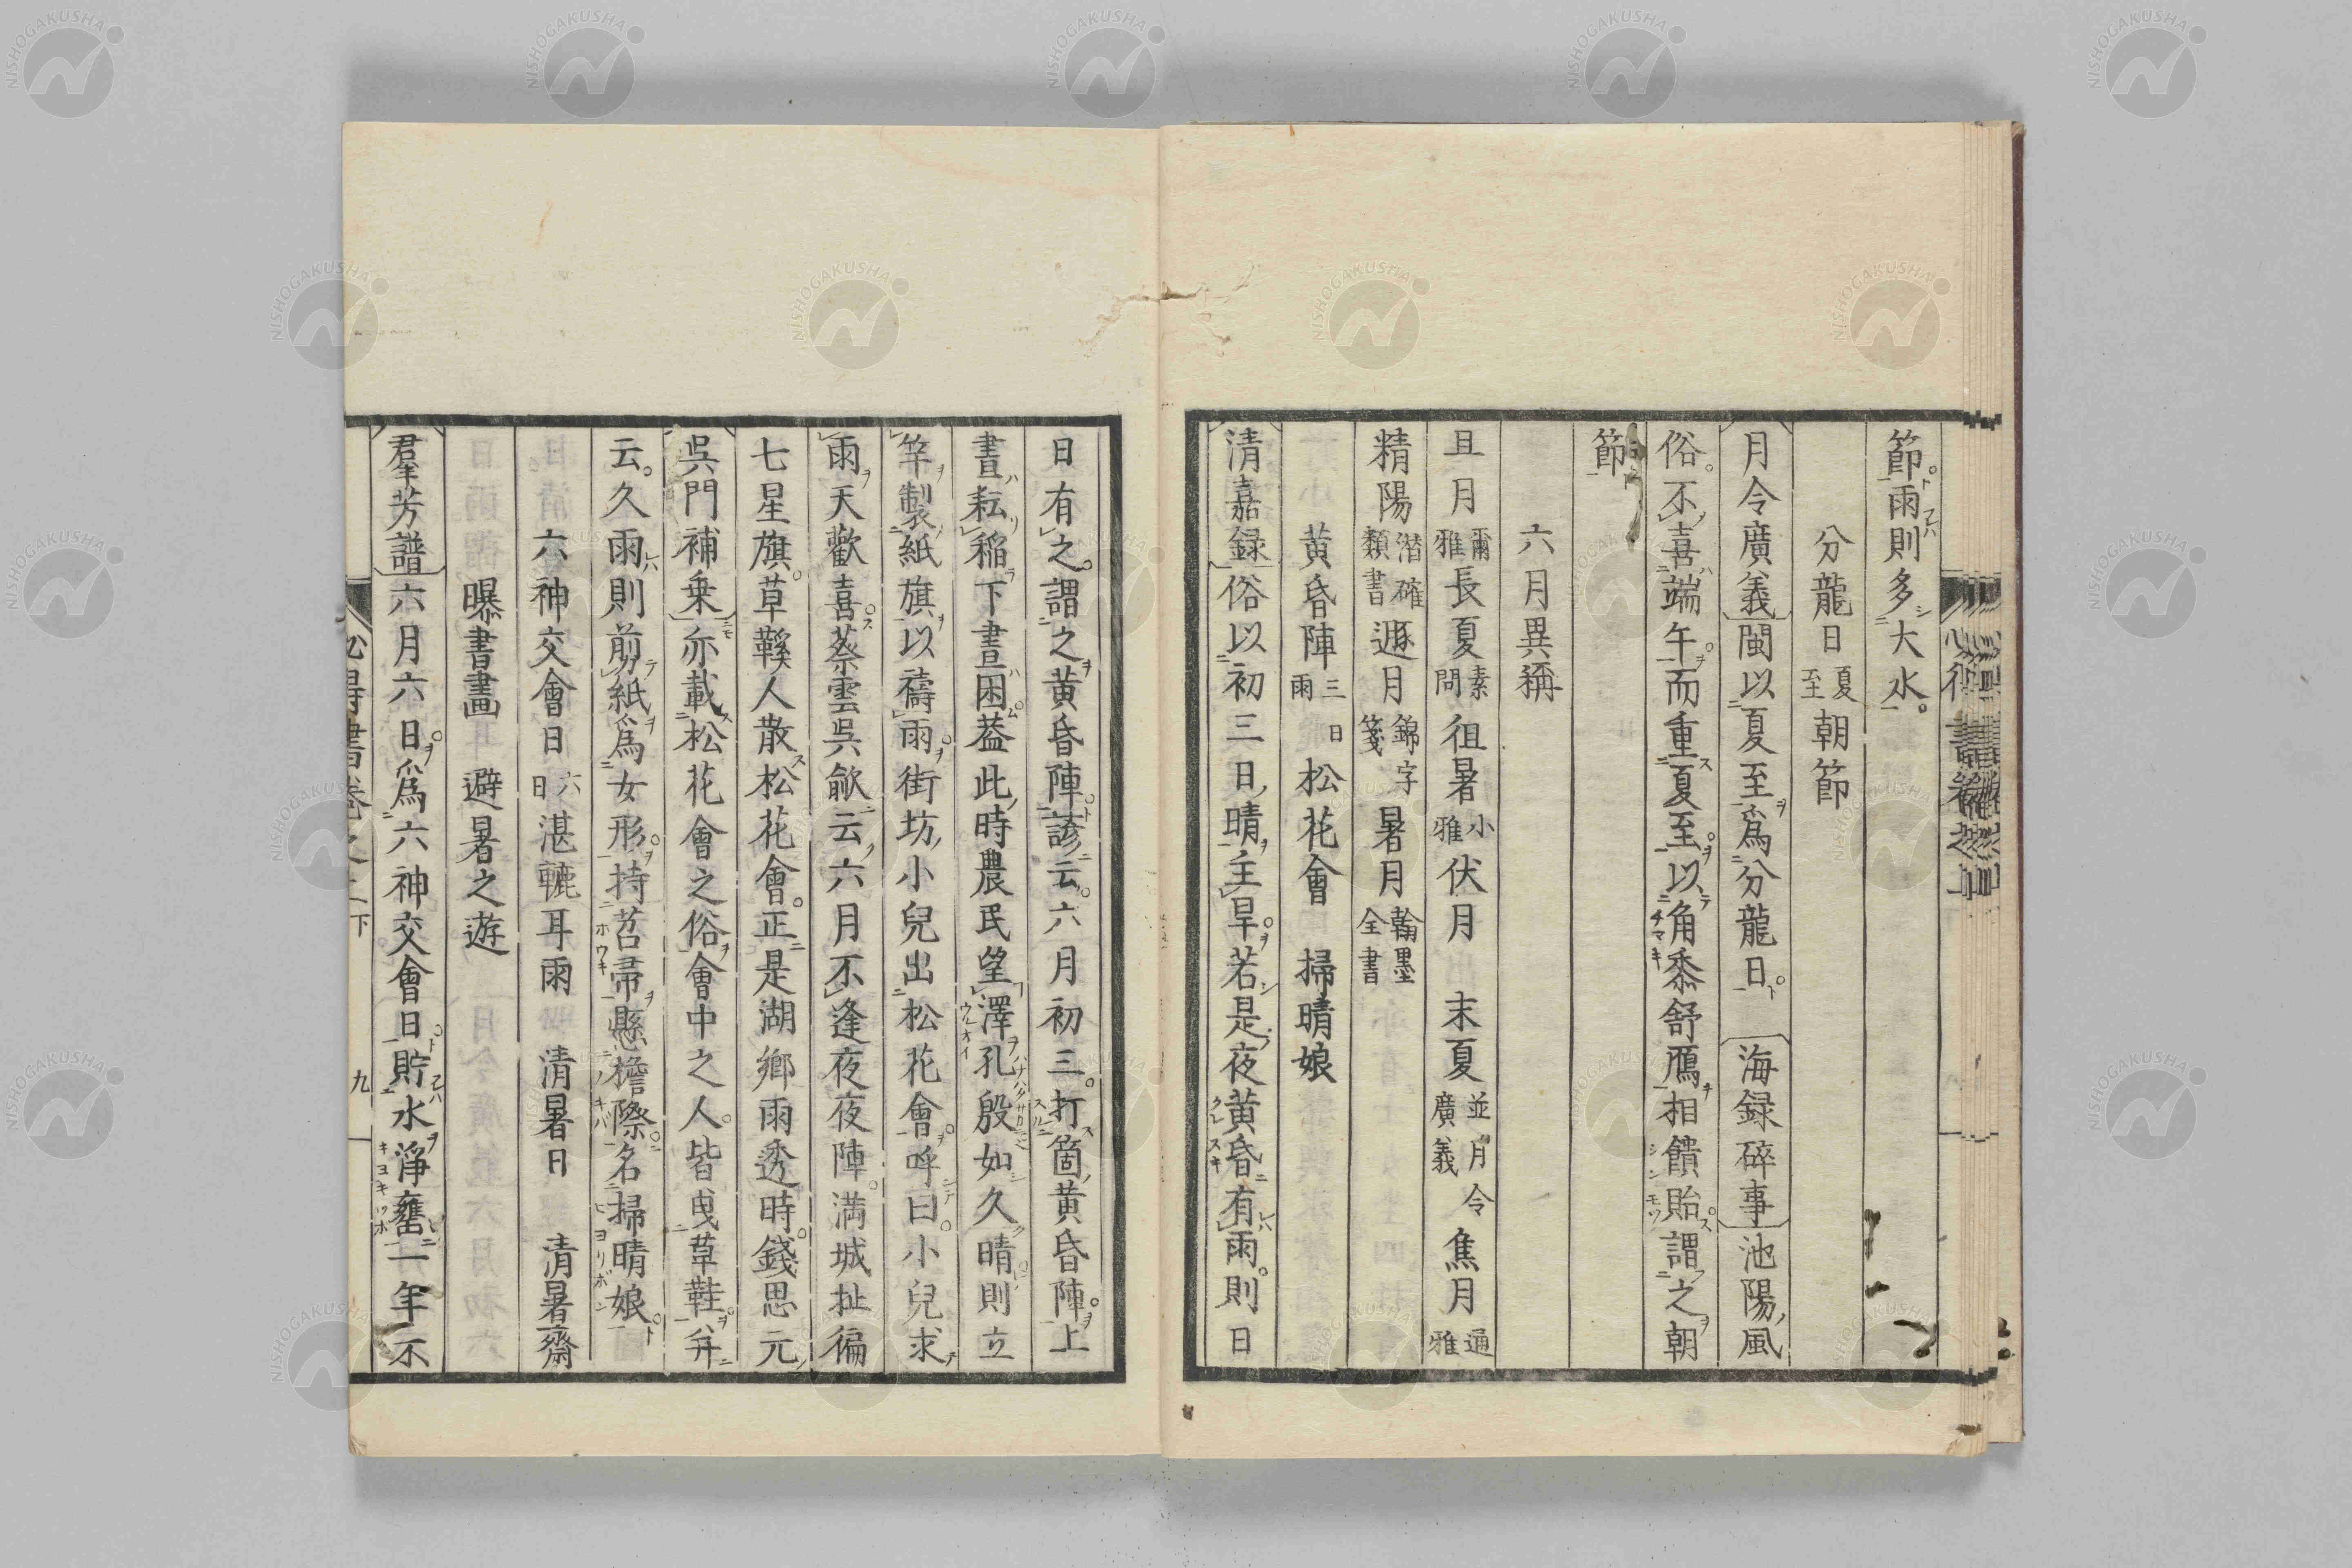 節雨則多大水
分龍日夏至朝節
月令廣義閩以夏至爲分龍日 海録碎事池陽風
俗不喜端午而重夏至以角黍舒鴈相饋貽謂之朝
節
六月異稱
且月爾雅長夏素問徂暑小雅伏月 末夏並月令廣義焦月通雅
精陽潛確類書遯月錦字箋暑月翰墨全書
黄昏陣三日雨松花會 掃晴娘
清嘉録俗以初三日晴主旱若是夜黄昏有雨則日
日有之謂之黄昏陣諺云六月初三打箇黄昏陣上
晝耘稲下晝困葢此時農民望澤孔殷如久晴則立
竿製紙旗以禱雨街坊小兒出松花會呼曰小兒求
雨天歡喜蔡雲呉歈云六月不逢夜夜陣満城扯徧
七星旗草鞵人散松花會正是湖郷雨透時錢思元
呉門補乗亦載松花會之俗會中之人皆曳草鞋并
云久雨則剪紙爲女形持苕帚懸檐際名掃晴娘
六神交會日六日湛轆耳雨 清暑日 清暑齋
曝書畫 避暑之遊
羣芳譜六月六日爲六神交會日貯水淨甕一年不
必得書巻之二下 九